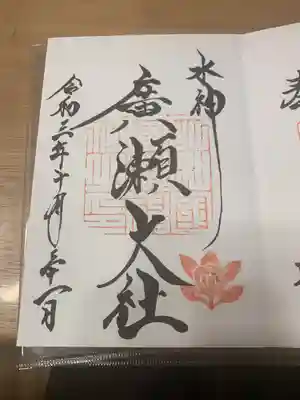 水神
廣瀬大社
令和三年十月三十一日